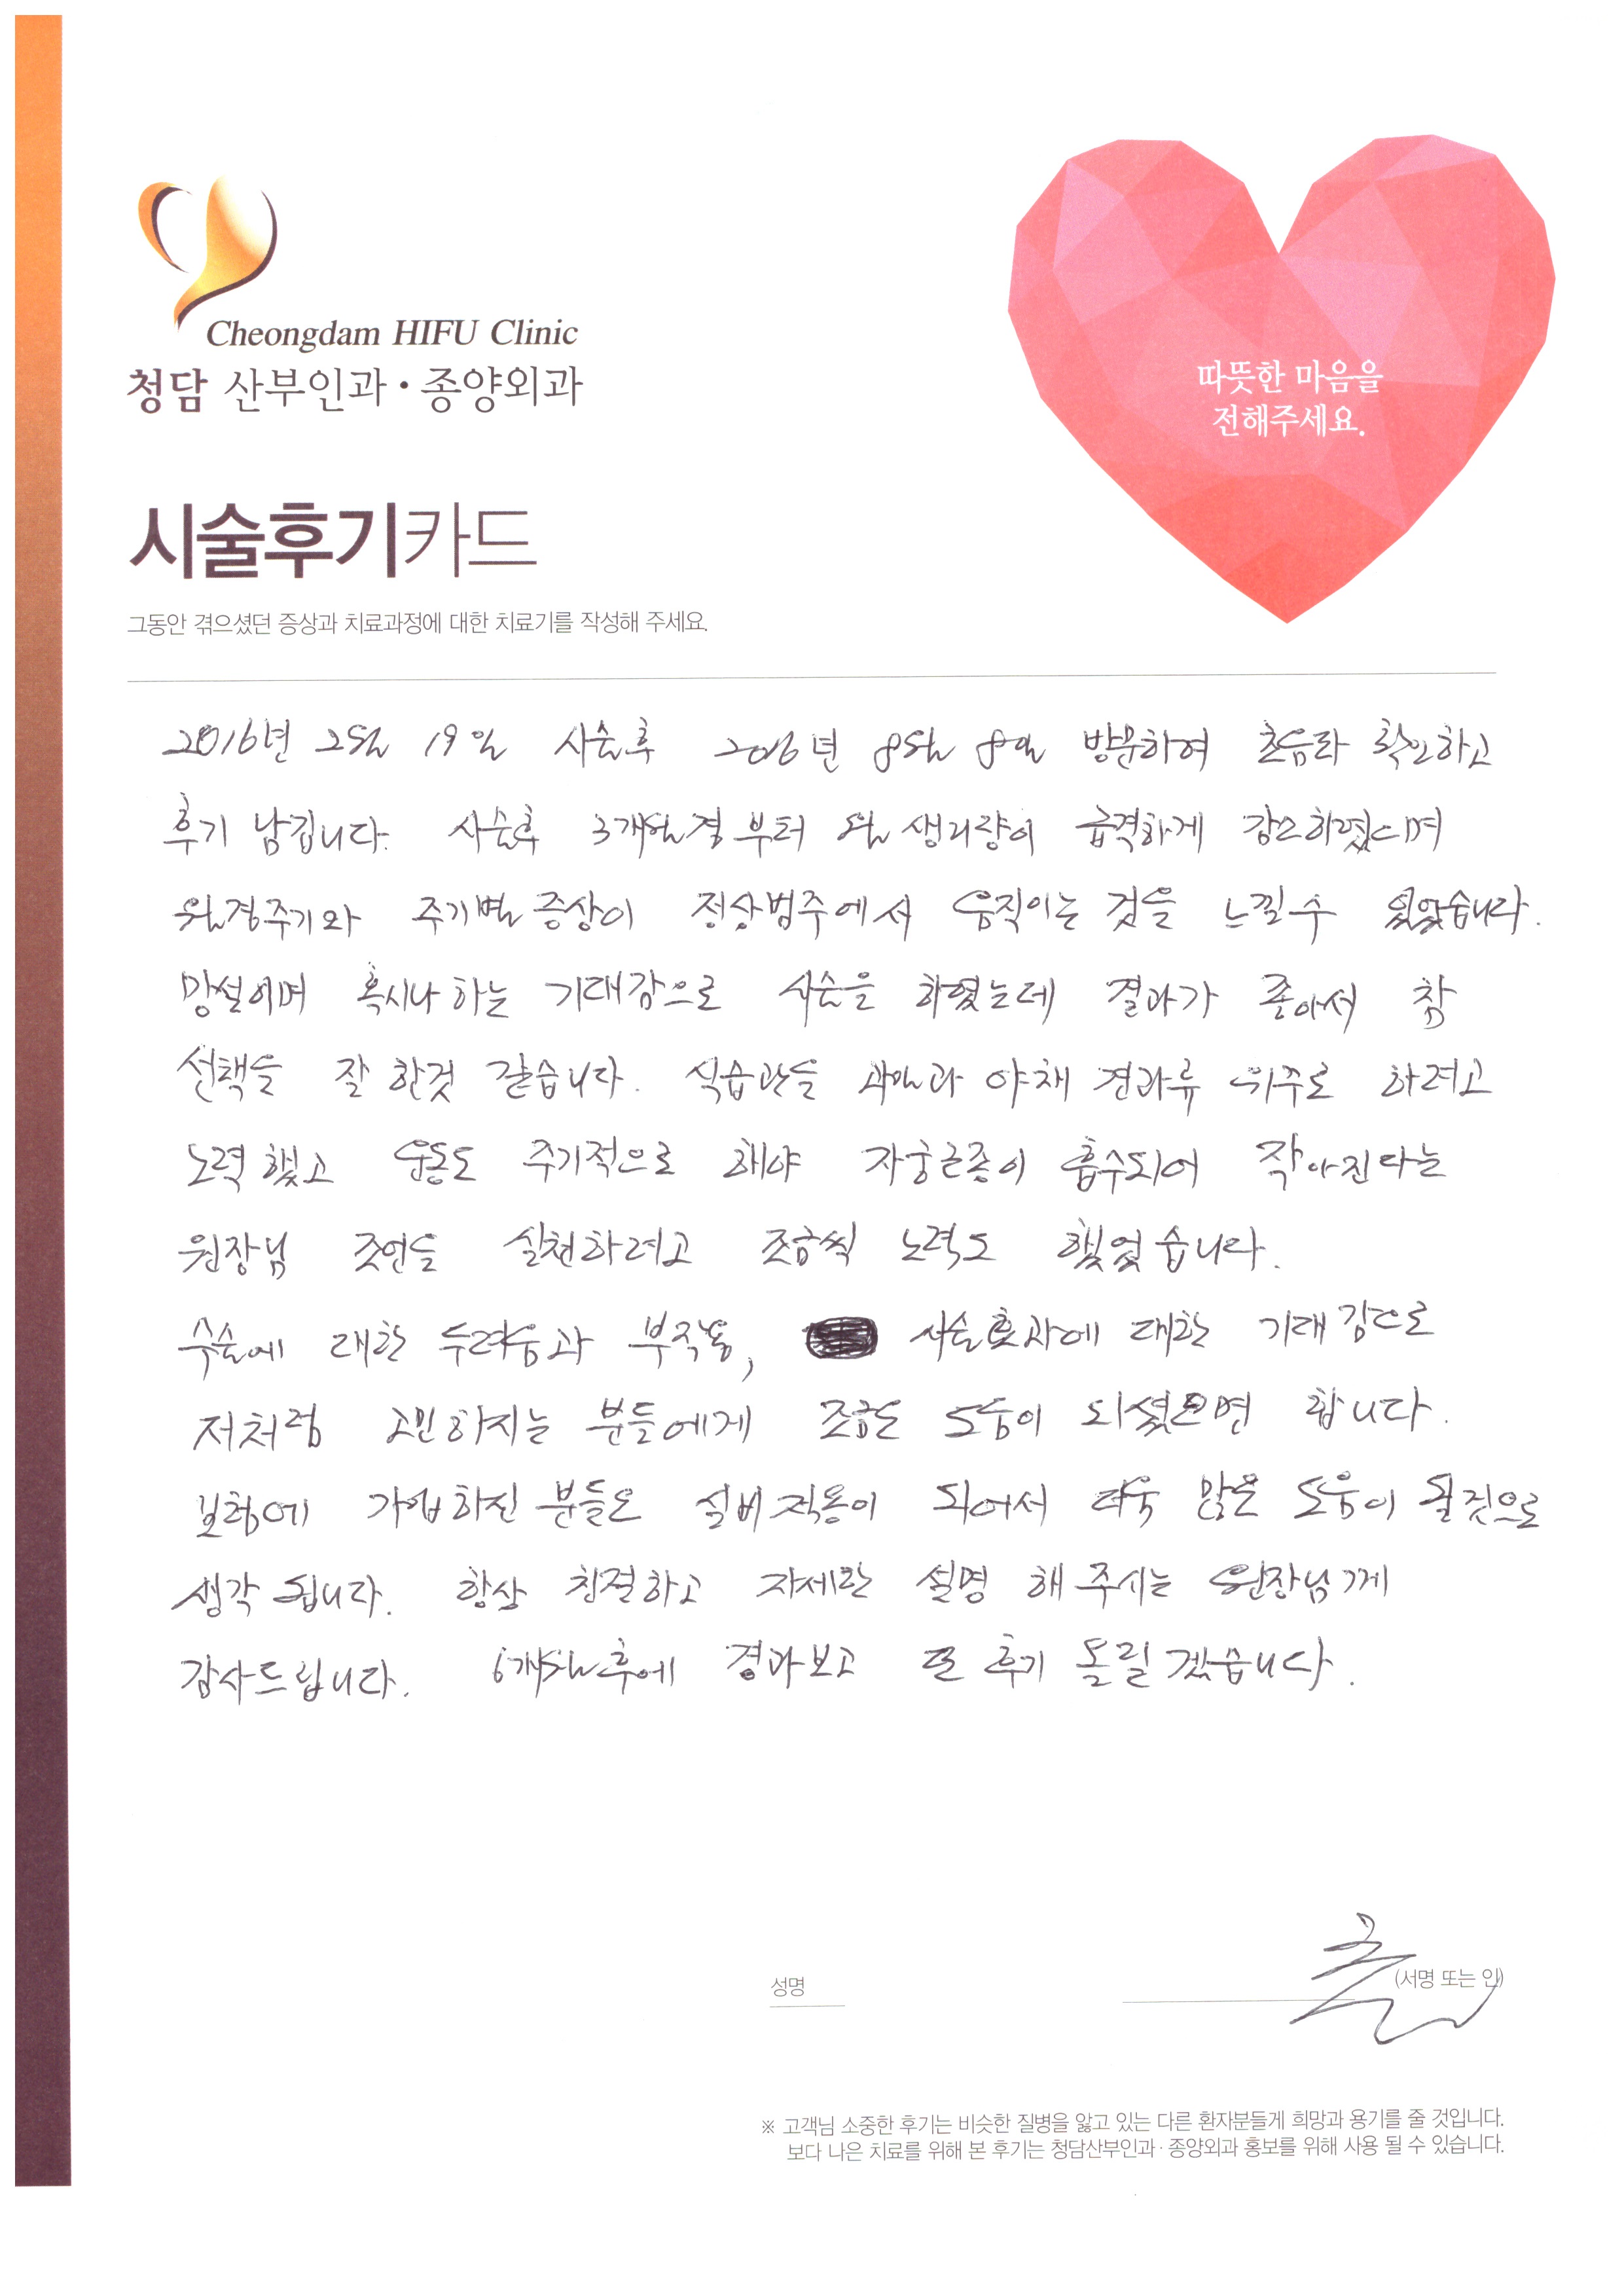 Cheongdam HIFU Clinic
청담 산부인과·종양외과
따뜻한 마음을
전해주세요.
시술후기카드
그동안 겪으셨던 증상과 치료과정에 대한 치료기를 작성해 주세요.
2016년 2월 19일 시술후 2016년 8월 8일 방문하여 초음파 확인하고
후기 남깁니다. 시술후 3개월경부터 월 생리량이 급격하게 감소하였으며
월경주기와 주기별 증상이 정상범주에서 움직이는 것을 느낄수 있었습니다.
망설이며 혹시나 하는 기대감으로 시술을 하였는데 결과가 좋아서 참
선택을 잘 한것 같습니다. 식습관을 과일과 야채 견과류 위주로 하려고
노력했고 운동도 주기적으로 해야 자궁근종이 흡수되어 작아진다는
원장님 조언을 실천하려고 조금씩 노력도 했었습니다.
수술에 대한 두려움과 부작용, 시술효과에 대한 기대감으로
저처럼 고민하지는 분들에게 조금은 도움이 되셨으면 합니다.
보험에 가입하진 분들은 실비적용이 되어서 더욱 많은 도움이 될것으로
생각 됩니다. 항상 친절하고 자세한 설명 해 주시는 원장님께
감사드립니다. 6개월후에 경과보고 또 후기 올릴겠습니다.
성명
(서명 또는 인)
※ 고객님 소중한 후기는 비슷한 질병을 앓고 있는 다른 환자분들게 희망과 용기를 줄 것입니다.
보다 나은 치료를 위해 본 후기는 청담산부인과·종양외과 홍보를 위해 사용 될 수 있습니다.